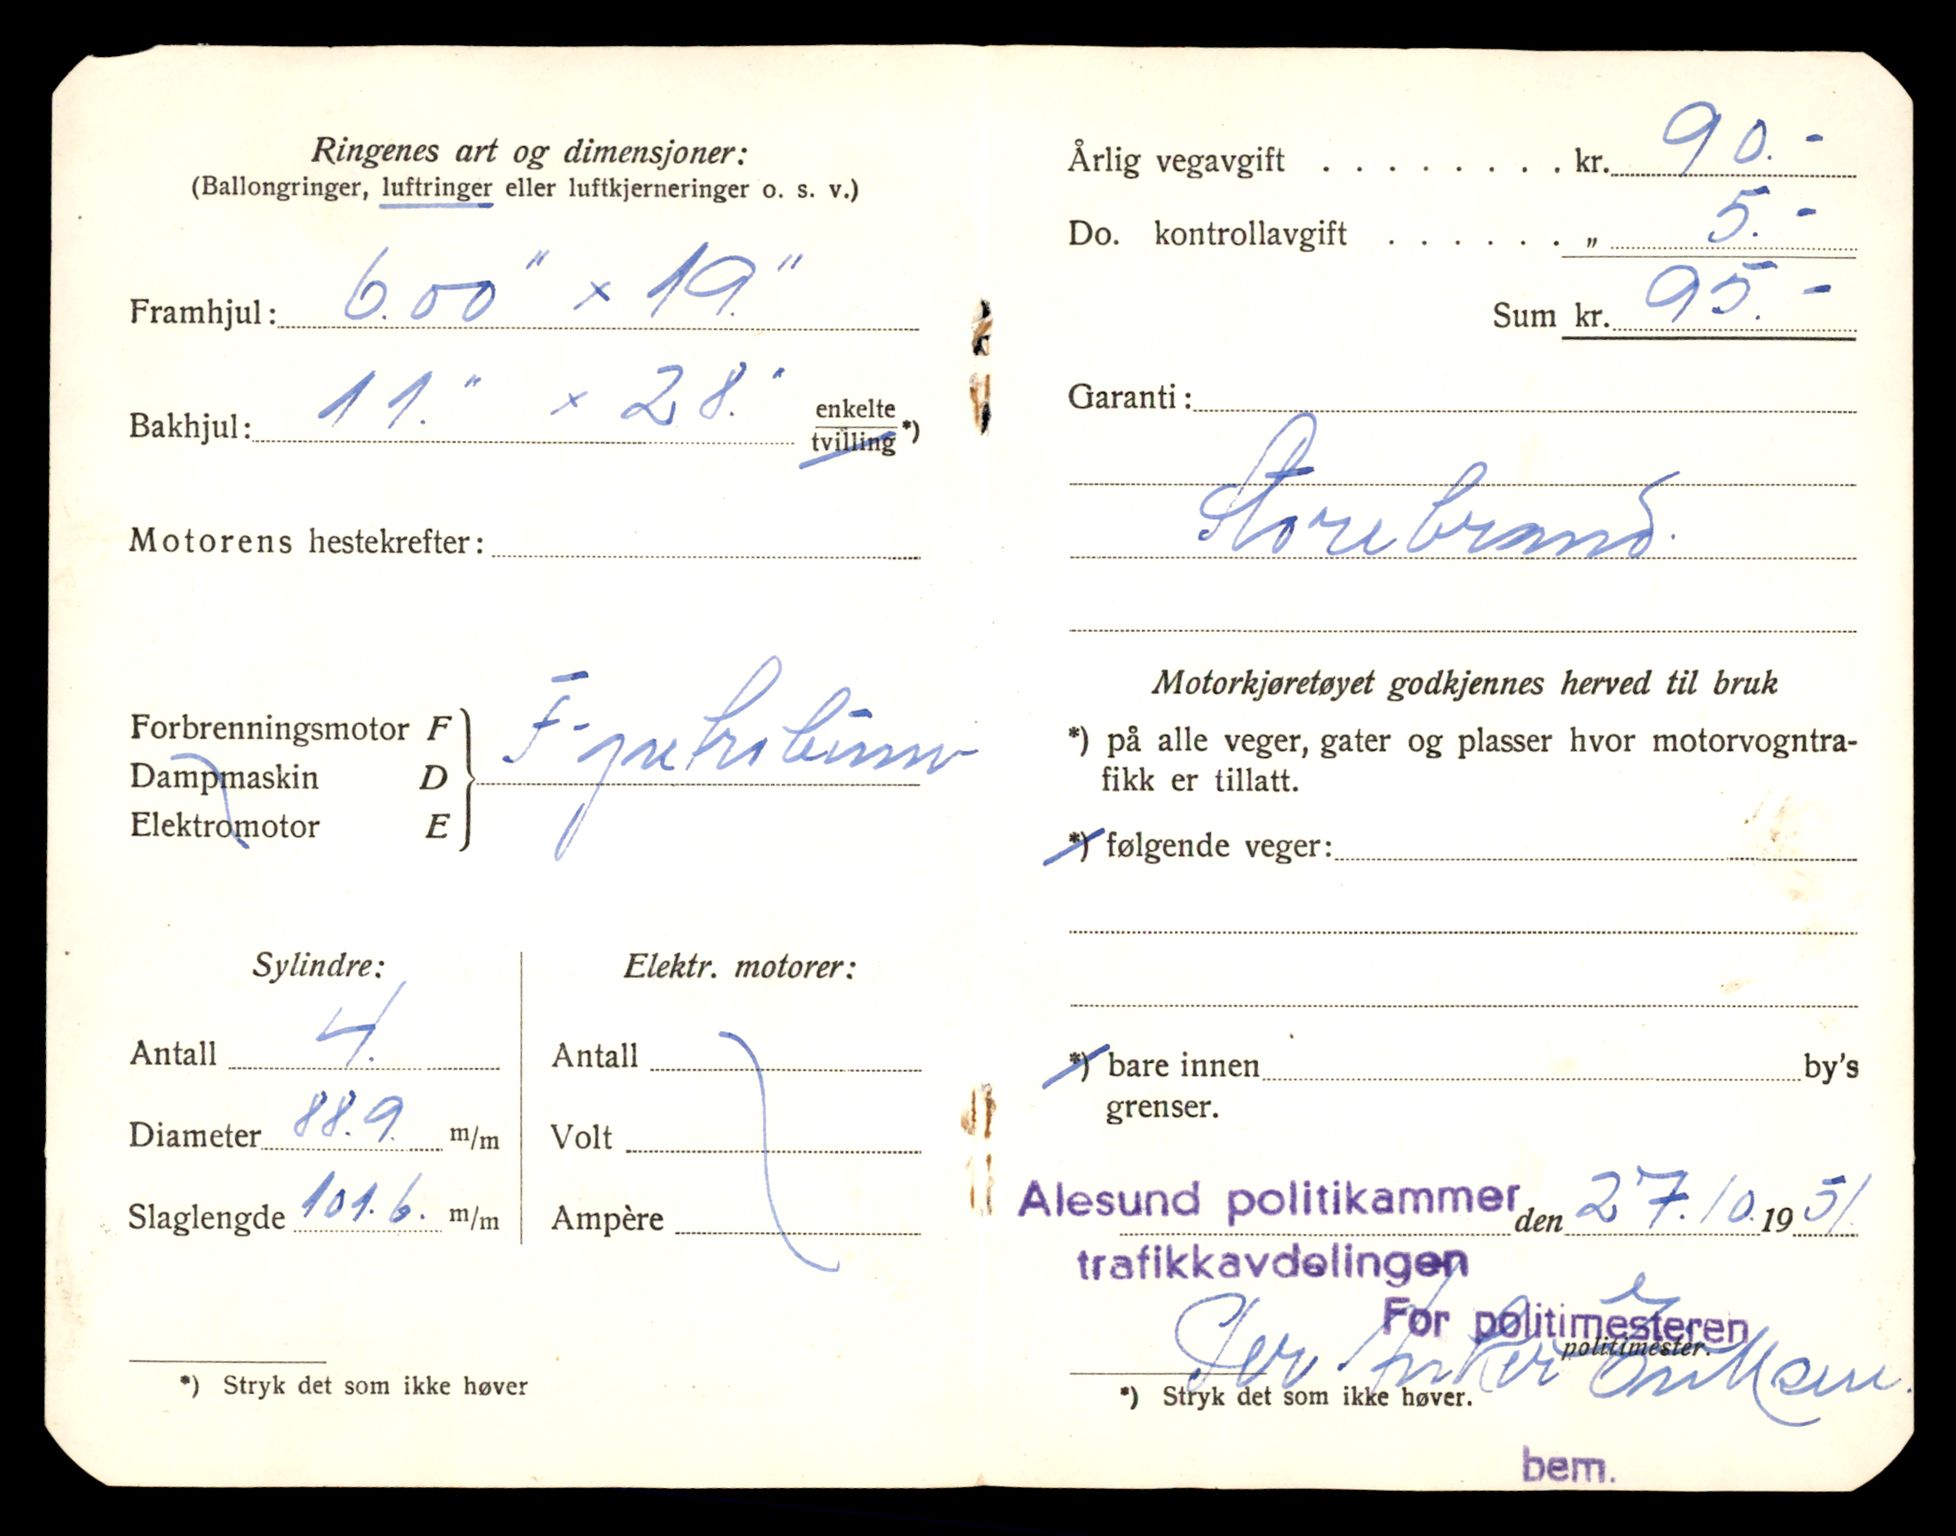 Ringenes art og dimensjoner:
(Ballongringer, luftringer eller luftkjerneringer o. s. v.)
Framhjul: 6.00" × 19."
Bakhjul: 11." × 28." enkelte
tvilling *)
Motorens hestekrefter:
Forbrenningsmotor F
Dampmaskin D
Elektromotor E
F-
Sylindre:
Antall 4.
Diameter 88.9. m/m
Slaglengde 101.6. m/m
Elektr. motorer:
Antall
Volt
Ampère
*) Stryk det som ikke høver
Årlig vegavgift . . . . . . . . kr. 90.-
Do. kontrollavgift . . . . . . „ 5.-
Sum kr. 95.-
Garanti:
Storebrand.
Motorkjøretøyet godkjennes herved til bruk
*) på alle veger, gater og plasser hvor motorvogntra-
fikk er tillatt.
*) følgende veger:
*) bare innen by's
grenser.
Alesund politikammer den 27.10. 1951.
trafikkavdelingen
For politimesteren
politimester.
*) Stryk det som ikke høver.
bem.